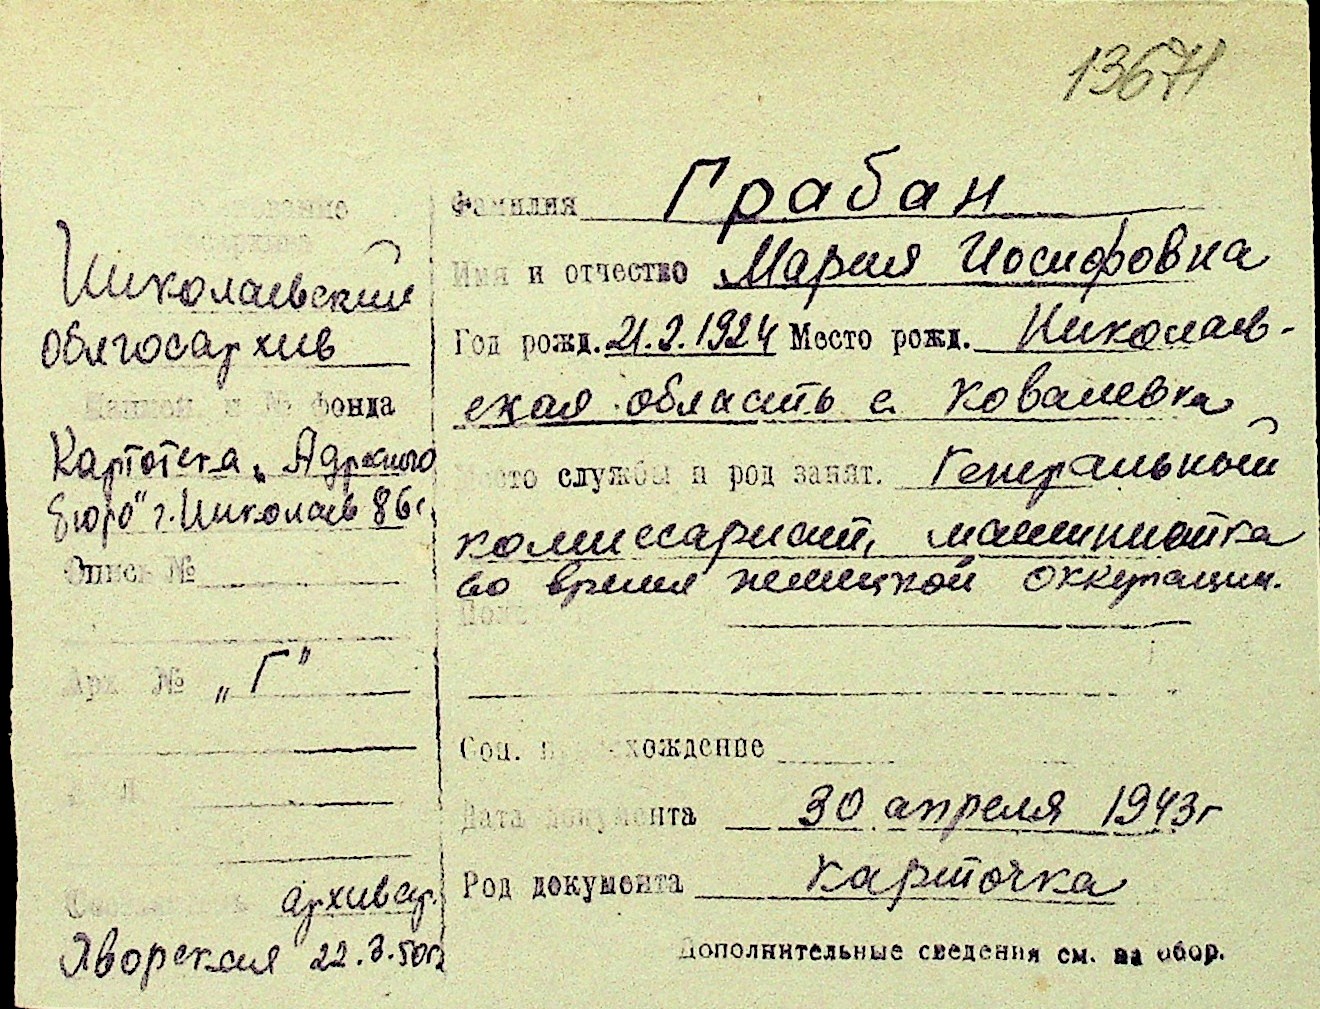 13671
Николаевский
облгосархив
Наимен. и № фонда
Картотека „Адресного
бюро" г. Николаев 86 г.
Опись №
Арх № „Г"
архивар.
Яворская 22.3.50 г.
Фамилия Грабан
Имя и отчество Мария Иосифовна
Год рожд. 21.2.1924 Место рожд. Николаев-
ская область с. Ковалевка
Место службы и род занят. Генеральный
комиссариат, машинистка
во время немецкой оккупации.
Соц. происхождение
Дата документа 30 апреля 1943 г
Род документа карточка
Дополнительные сведения см. на обор.